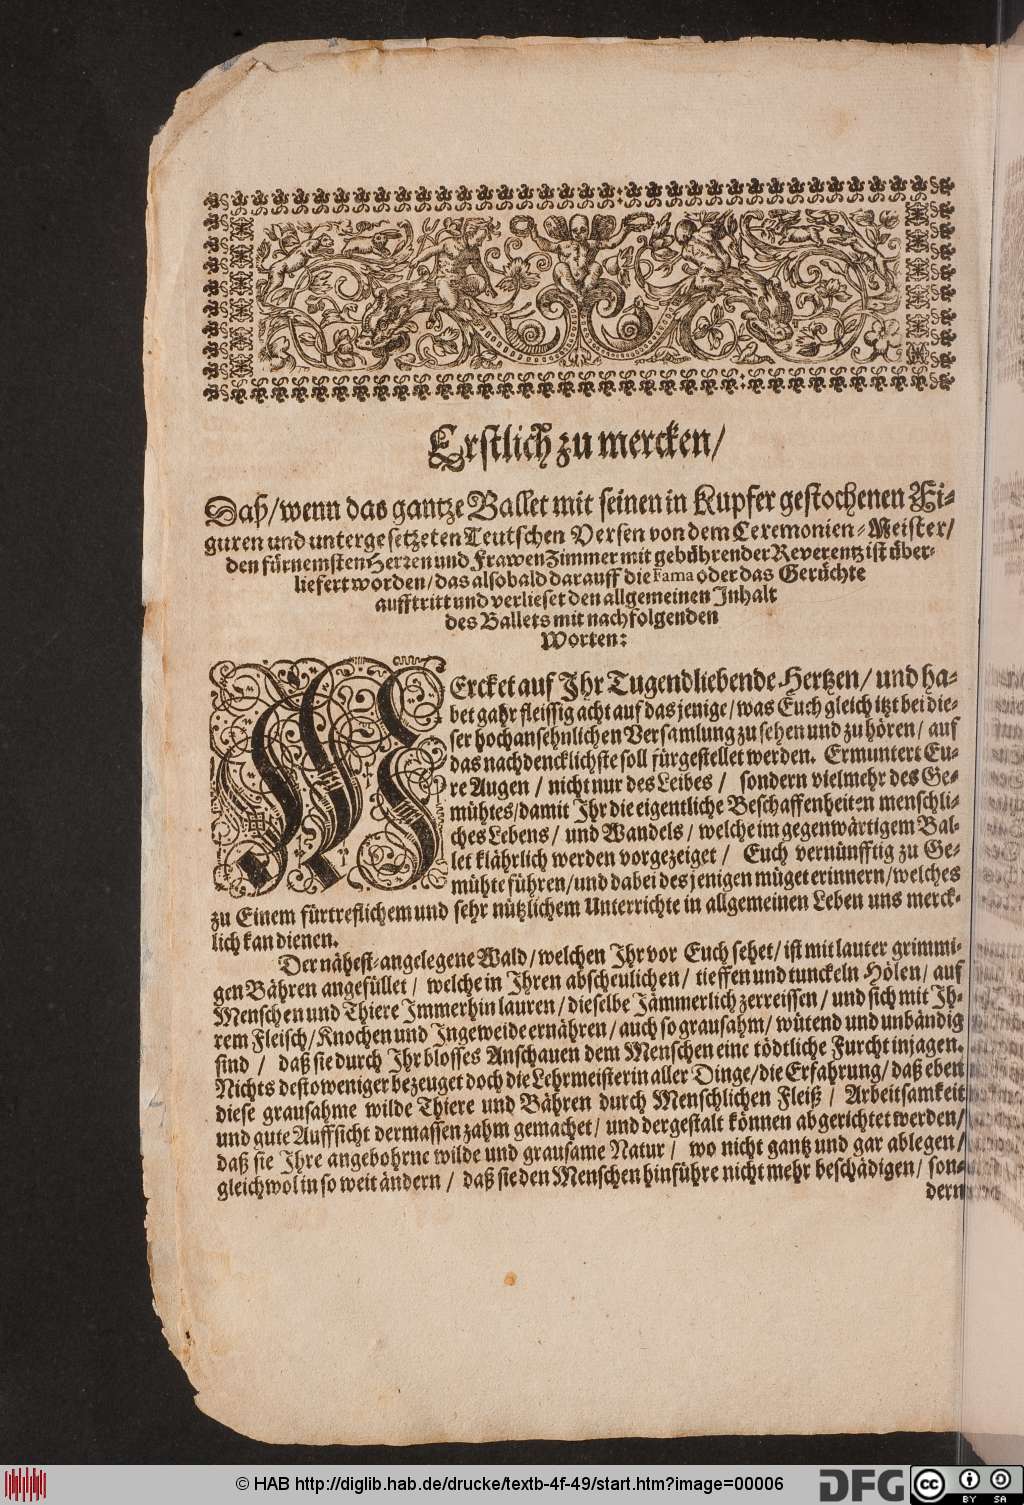 Erstlich zu mercken/
Daß/wenn das gantze Ballet mit seinen in Kupfer gestochenen Fi-
guren und untergesetzeten Teutschen Versen von dem Ceremonien-Meister/
den fürnemsten Herren und FrawenZimmer mit gebührender Reverentz ist über-
liefert worden/das alsobald darauff die Fama oder das Gerüchte
aufftritt und verlieset den allgemeinen Inhalt
des Ballets mit nachfolgenden
Worten:
MErcket auf Ihr Tugendliebende Hertzen/ und ha-
bet gahr fleissig acht auf das jenige/was Euch gleich itzt bei die-
ser hochansehnlichen Versamlung zu sehen und zu hören/ auf
das nachdencklichste soll fürgestellet werden. Ermuntert Eu-
re Augen / nicht nur des Leibes / sondern vielmehr des Ge-
mühtes/damit Ihr die eigentliche Beschaffenheiten menschli-
ches Lebens/ und Wandels/ welche im gegenwärtigem Bal-
let klährlich werden vorgezeiget / Euch vernünfftig zu Ge-
mühte führen/und dabei des jenigen müget erinnern/welches
zu Einem fürtreflichem und sehr nützlichem Unterrichte in allgemeinen Leben uns merck-
lich kan dienen.
Der nähest-angelegene Wald/welchen Ihr vor Euch sehet/ ist mit lauter grimmi-
gen Bähren angefüllet / welche in Ihren abscheulichen/ tieffen und tunckeln Hölen/ auf
Menschen und Thiere Immerhin lauren/dieselbe Jämmerlich zerreissen/ und sich mit Ih-
rem Fleisch/Knochen und Ingeweide ernähren/ auch so grausahm/ wütend und unbändig
sind / daß sie durch Ihr blosses Anschauen dem Menschen eine tödtliche Furcht injagen.
Nichts destoweniger bezeuget doch die Lehrmeisterin aller Dinge/die Erfahrung/ daß eben
diese grausahme wilde Thiere und Bähren durch Menschlichen Fleiß / Arbeitsamkeit
und gute Auffsicht dermassen zahm gemachet/ und dergestalt können abgerichtet werden/
daß sie Ihre angebohrne wilde und grausame Natur / wo nicht gantz und gar ablegen/
gleichwol in so weit ändern / daß sie den Menschen hinführe nicht mehr beschädigen/ son-
dern
© HAB http://diglib.hab.de/drucke/textb-4f-49/start.htm?image=00006
DFG
cc BY SA